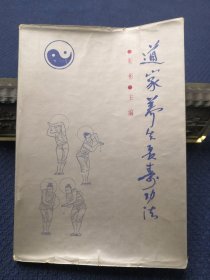 道家养生长寿功法
主编